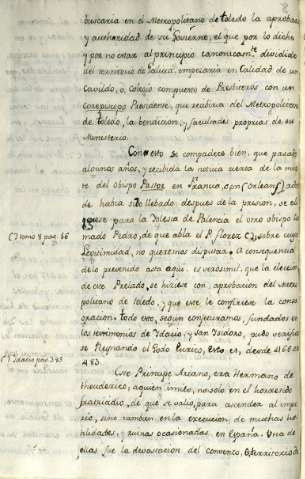 buscaria en el Metropolitano de toledo la aproba
y autharidad de su Govierno, el que por lo dicho
y por no estar al principio canonicam.te dividido
del territorio de Galicia, empezaria en Calidad de un
Cavildo, o Colegio compuesto de Presbiteros con un
Presidente, que recibiria del Metropolitano
de toledo, la bendicion, y facultades propias de su
Ministerio.
Con esto se compadece bien, que pasado
algunos años, y recibida la noticia cierta de la muer
te del obispo Pastor en Francia, con (Orleans) ado
de habia sido llebado despues de la prision, se el
para la Iglesia de Palencia el otro obispo lla
(*) tomo 8 pag. 56
mado Pedro, de que abla el P. florez (*) sobre cuya
Legitimidad, no queremos disputar. A consequencia
de lo prevenido asta aqui, es verosimil, que la eleccion
de este Prelado, se hiciese con aprobacion del Metro
politano de toledo, y que este le confiriese la cons
agracion. todo esto, segun conjeturamos, fundados en
los testimonios de Idacio, y San Isidoro, pudo verificar
se Reynando el Godo Eurico, esto es, desde 466 a
483.
(*) Idacio pag. 385
Este Principe Arriano, era Hermano de
theuderico, aquien imito, no solo en el horrendo
fratricidio, de que se valio, para ascender al impe
rio, sino tambien en la execucion de muchas hos
tilidades, y ruinas ocasionadas, en España. Una de
ellas fue la devastacion del convento, o territorio de